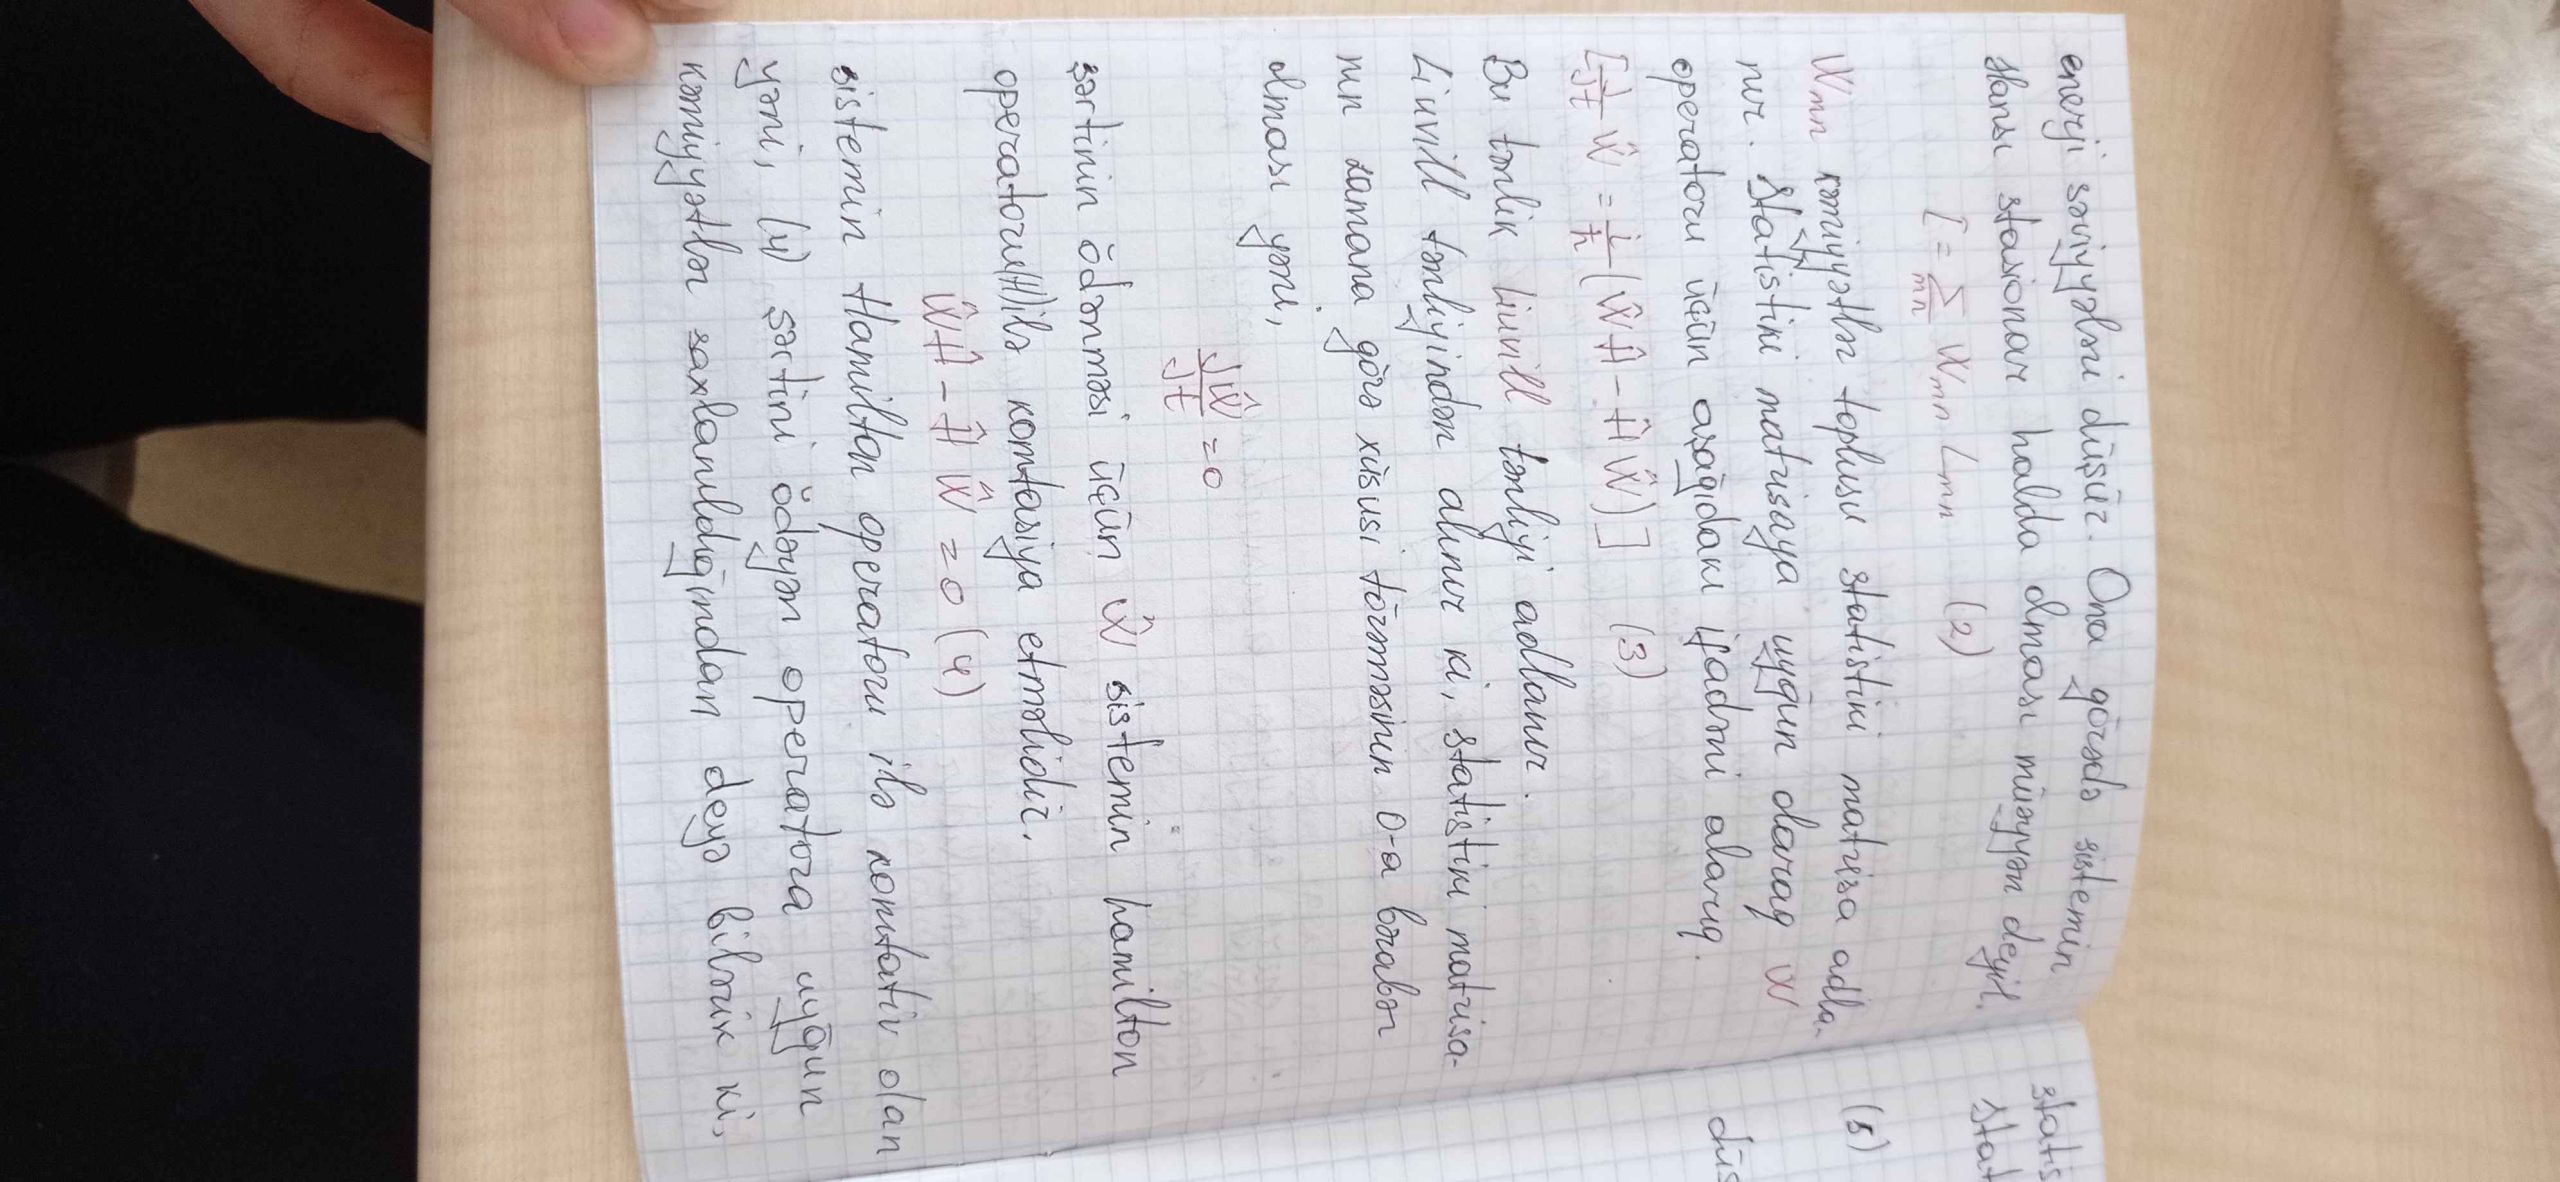 enerji səviyyələri düşür. Ona görədə sistemin
hansı stasionar halda olması müəyyən deyil.
Σ = Σ Wmn Lmn (2)
mn
Wmn kəmiyyətlər toplusu statistiki matrisa adla-
nır. Statistiki matrisaya uyğun olaraq W
operatoru üçün aşağıdakı ifadəni alarıq.
[∂/∂t Ŵ = i/ħ (ŴĤ - ĤŴ)] (3)
Bu tənlik Liuvill tənliyi adlanır.
Liuvill tənliyindən alınır ki, statistiki matrisa-
nın zamana görə xüsusi törəməsinin 0-a bərabər
olması yəni,
∂Ŵ/∂t = 0
şərtinin ödənməsi üçün Ŵ sistemin hamilton
operatoru(H)ilə komutasiya etməlidir.
ŴĤ - ĤŴ = 0 (4)
sistemin Hamilton operatoru ilə komutativ olan
yəni, (4) şərtini ödəyən operatora uyğun
kəmiyyətlər saxlanıldığından deyə bilərik ki,
statis
stat
(5)
düs